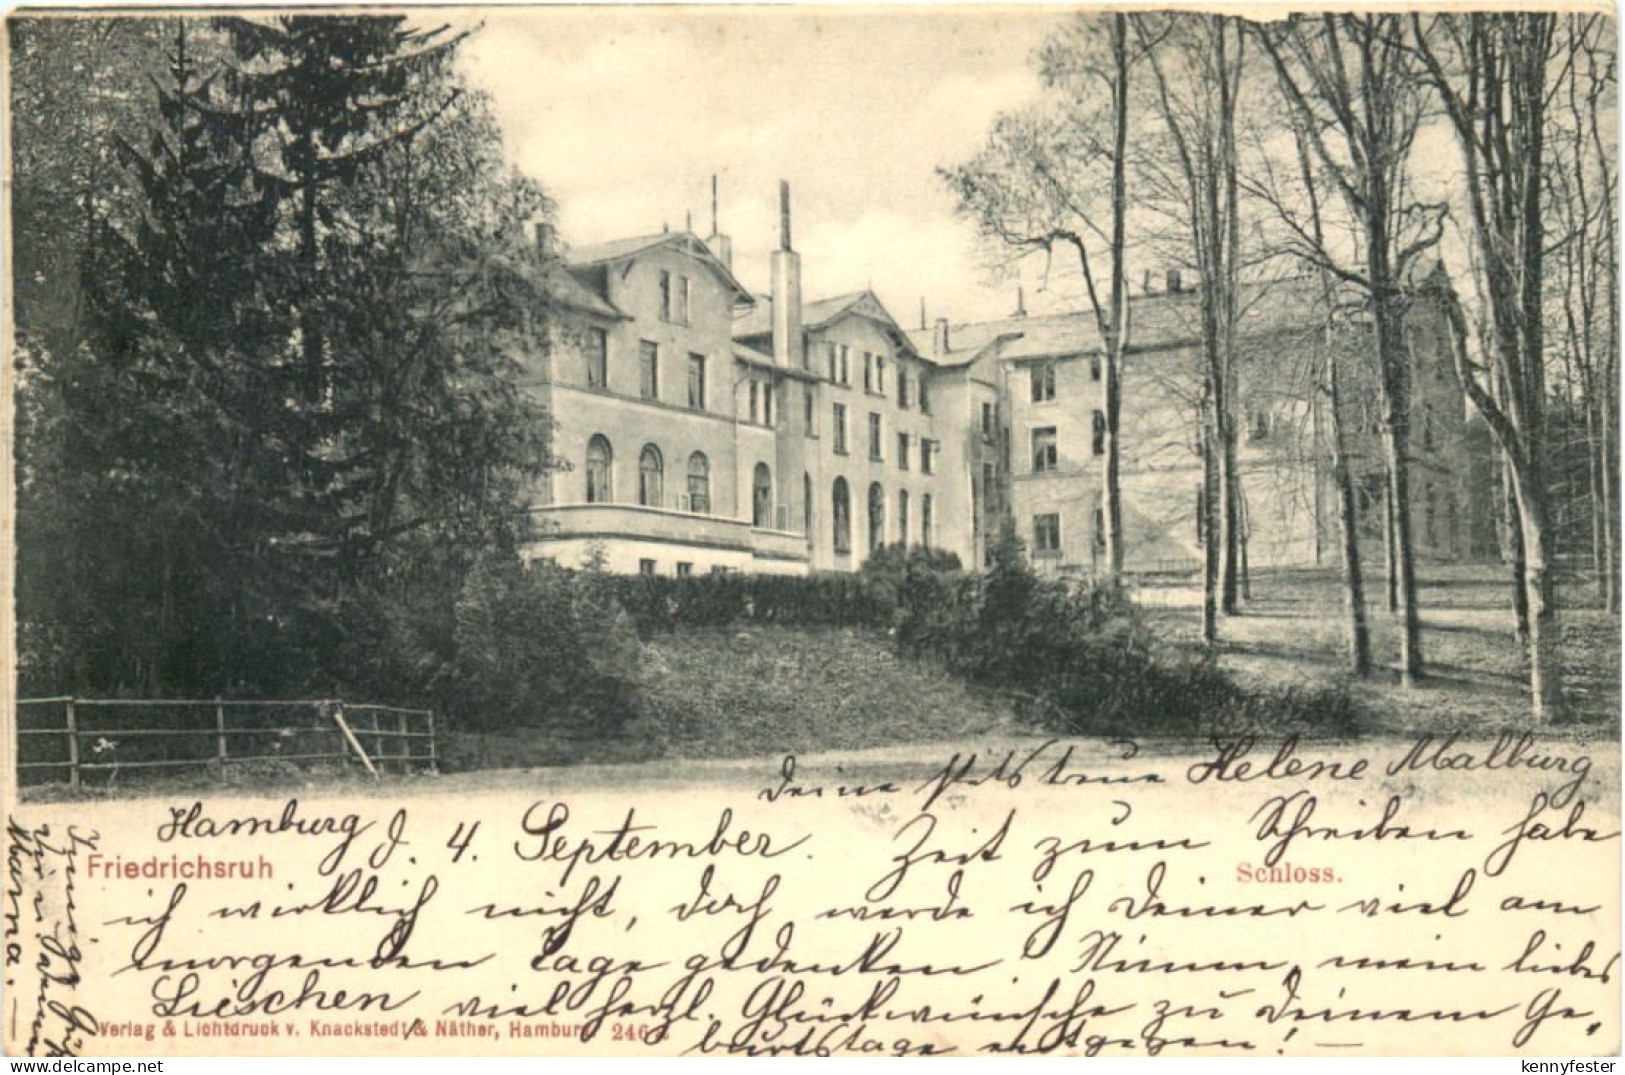 Deine stets treue Helene Malburg.
Hamburg d. 4. September. Zeit zum Schreiben habe
Friedrichsruh
Schloss.
ich wirklich nicht, doch werde ich Deiner viel am
morgenden Tage gedenken. Nimm, mein liebes
Lieschen viel herzl. Glückwünsche zu Deinem Ge-
Verlag & Lichtdruck v. Knackstedt & Näther, Hamburg 246
burtstage entgegen! —
Innige
Mama. —
kennyfester